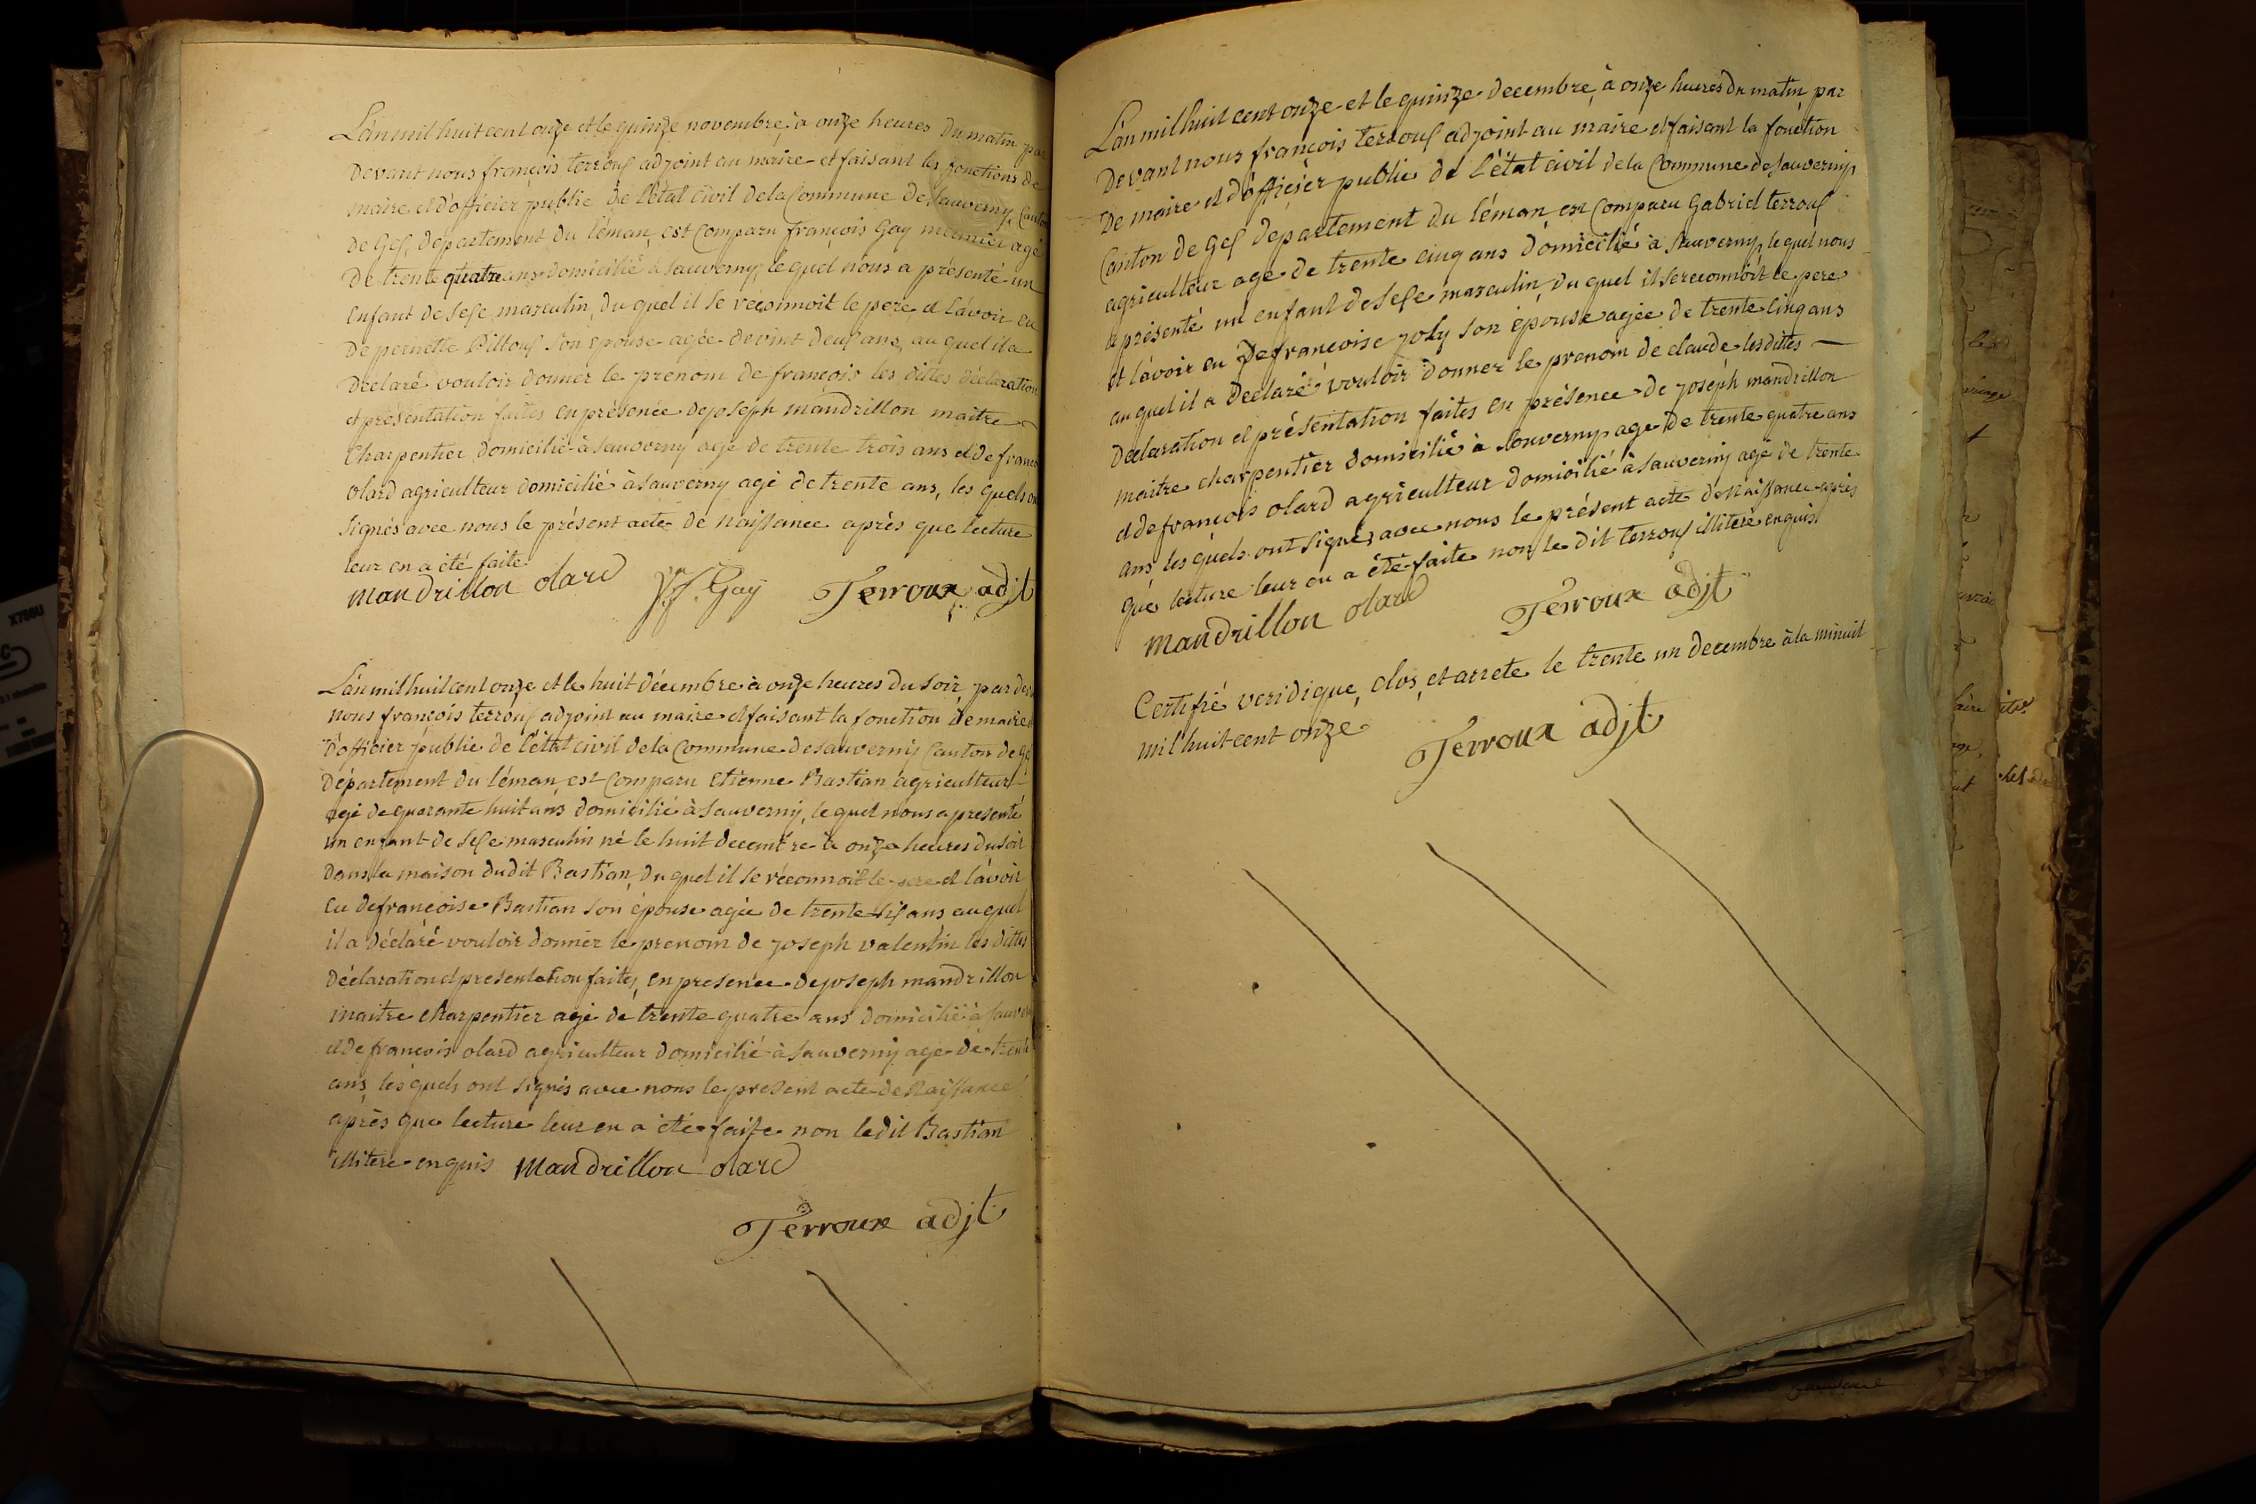 L'an mil huit cent onze et le quinze novembre, à onze heures du matin par
devant nous françois terroux adjoint au maire et faisant les fonctions de
maire et d'officier public de l'état civil de la Commune de Sauverny, Canton
de Gex, département du léman, est Comparu françois Gay meunier agé
de trente quatre ans domicilié à Sauverny, le quel nous a présenté un
enfant de sexe masculin, du quel il se réconnoit le pere et l'avoir eu
de pernette Pilloux son epouse agée de vint deux ans, au quel il a
déclaré vouloir donner le prenom de françois les dittes déclaration
et présentation faites en présence de joseph mandrillon maitre
charpentier domicilié à Sauverny agé de trente trois ans et de françois
olard agriculteur domicilié à Sauverny agé de trente ans, les quels on
signés avec nous le présent acte de naissance après que lecture
leur en a été faite
mandrillon olard J. f. Gay Terroux adjt
L'an mil huit cent onze et le huit décembre à onze heures du soir, par dev
nous françois terroux adjoint au maire et faisant la fonction de maire
d'officier public de l'état civil de la Commune de sauverny Canton de gex
département du léman, est Comparu etienne Bastian agriculteur
agé de quarante huit ans domicilié à Sauverny, le quel nous a presenté
un enfant de sexe masculin né le huit decembre à onze heures du soir
dans la maison du dit Bastian, du quel il se réconnoit le pere et l'avoir
eu de françoise Bastian son épouse agée de trente six ans au quel
il a déclaré vouloir donner le prenom de joseph valentin les dittes
déclaration et presentation faites, en presence de joseph mandrillon
maitre charpentier agé de trente quatre ans domicilié à sauver
et de françois olard agriculteur domicilié à Sauverny agé de trente
ans, les quels ont signés avec nous le present acte de Naissance
après que lecture leur en a été faite non le dit Bastian
illitere enquis mandrillon olard
Terroux adjt
L'an mil huit cent onze et le quinze decembre, à onze heures du matin, par
devant nous françois terroux adjoint au maire et faisant la fonction
de maire et d'officier public de l'état civil de la Commune de Sauverny,
Canton de Gex département du léman, est Comparu Gabriel terroux
agriculteur agé de trente cinq ans domicilié à Sauverny, le quel nous
a présenté un enfant de sexe masculin, du quel il se reconnoit le pere
et l'avoir eu de françoise joly son épouse agée de trente cinq ans
au quel il a déclaré vouloir donner le prenom de claude, les dittes —
déclaration et présentation faites en présence de joseph mandrillon
maitre charpentier domicilié à Sauverny agé de trente quatre ans
et de françois olard agriculteur domicilié à Sauverny agé de trente
ans, les quels ont signés avec nous le présent acte de Naissance après
que lecture leur en a été faite non le dit terroux illitere enquis
mandrillon olard
Terroux adjt
Certifié veridique, clos, et arrete le trente un decembre à la minuit
mil huit cent onze
Terroux adjt